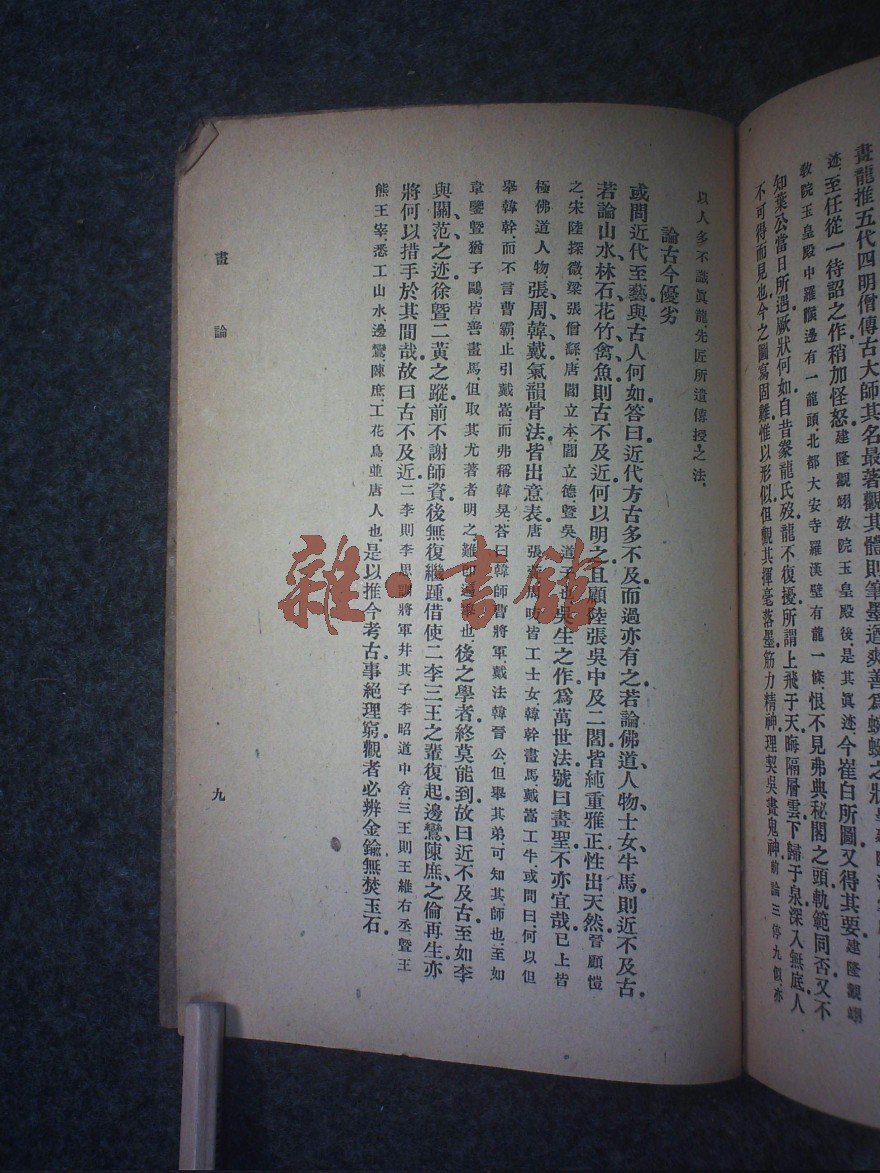 畫龍推五代四明僧傳古大師其名最著觀其體則筆墨遒爽善爲蜿蜒之狀
迹.至任從一待詔之作稍加怪怒.建隆觀翊敎院玉皇殿後是其眞迹.今崔白所圖又得其要.建隆觀翊
敎院玉皇殿中羅邊有一龍頭.北都大安寺羅漢壁有龍一條.恨不見弗典秘閣之頭軌範同否又不
知葉公當日所遇厥狀何如自昔豢龍氏歿龍不復擾所謂上飛于天晦隔層雲下歸于泉深入無底人
不可得而見也今之圖寫固難惟以形似但觀其揮毫落墨筋力精神理契吳畫鬼神前論三停九似亦
以人多不識眞龍.先匠所遺傳授之法.
論古今優劣
或問近代至藝與古人何如答曰近代方古多不及而過亦有之若論佛道人物士女牛馬則近不及古
若論山水林石花竹禽魚則古不及近何以明之且顧陸張吳中及二閻皆純重雅正性出天然晉顧愷
之.宋陸探微.梁張僧繇.唐閻立本.閻立德.暨吳道子也.吳生之作爲萬世法號曰畫聖不亦宜哉.已上皆
極佛道人物.張周韓戴氣韻骨法皆出意表唐張萱周昉皆工士女.韓幹畫馬.戴嵩工牛.或問曰.何以但
舉韓幹.而不言曹霸.止引戴嵩.而弗稱韓晃.荅曰韓師曹將軍.戴法韓晉公.但舉其弟.可知其師也.至如
韋鑒暨猶子鷗.皆善畫馬.但取其尤著者明之.難即遍舉也.後之學者終莫能到故曰近不及古至如李
與關范之迹徐暨二黃之蹤前不謝師資後無復繼踵借使二李三王之輩復起邊鸞陳庶之倫再生亦
將何以措手於其間哉故曰古不及近二李則李思訓將軍并其子李昭道中舍.三王則王維右丞.暨王
熊王宰.悉工山水.邊鸞.陳庶.工花鳥.並唐人也.是以推今考古事絕理窮觀者必辨金鍮無焚玉石.
畫論
九
雜·書館